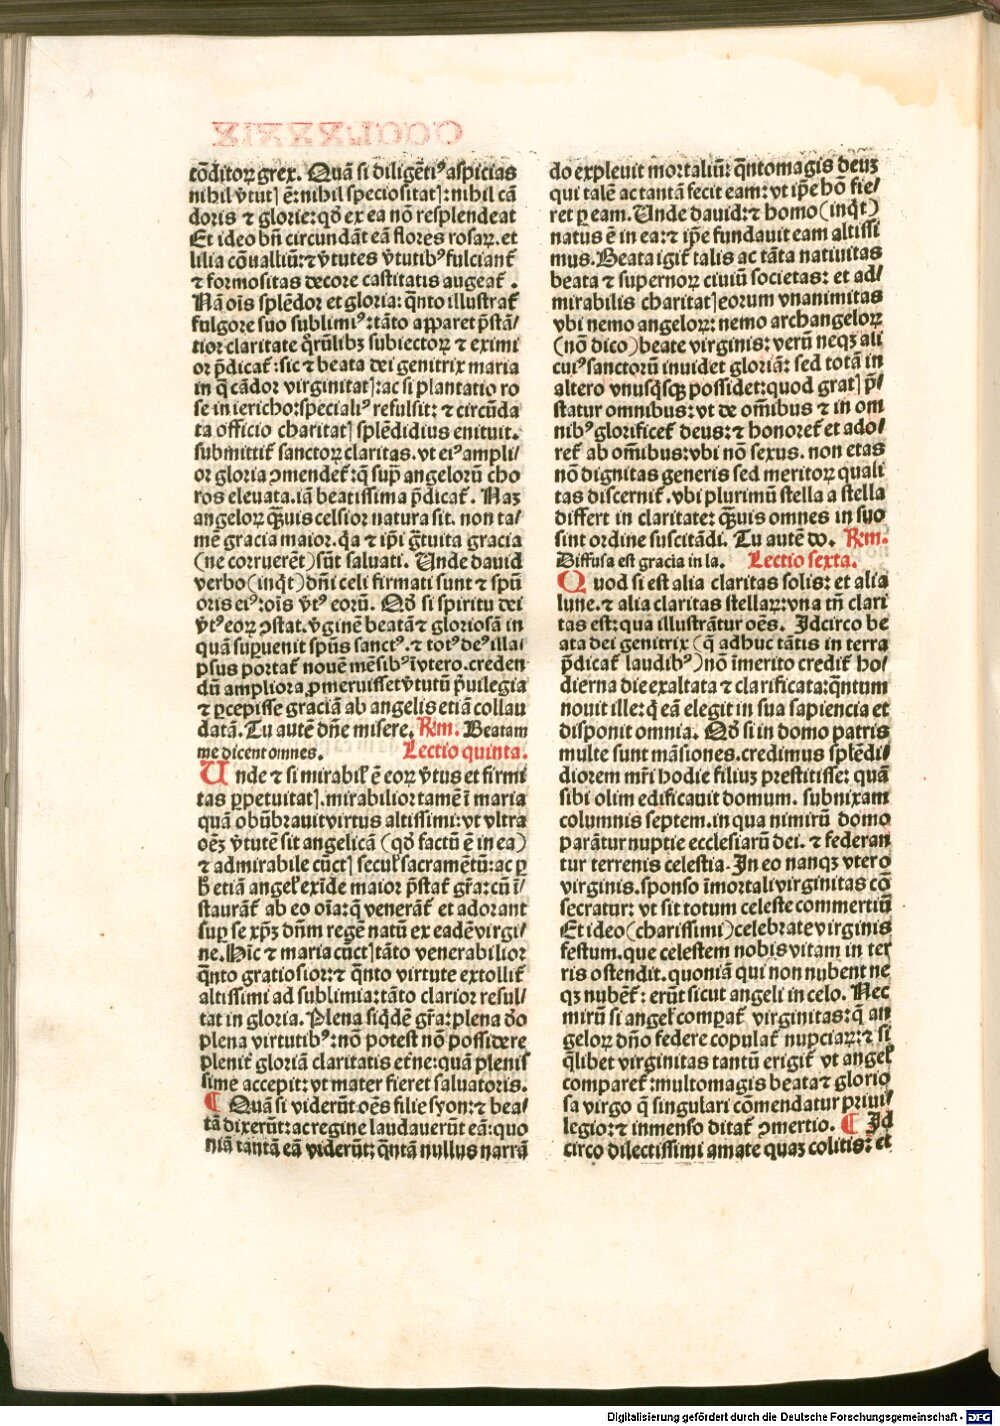 cōditoꝝ grex. Quā si diligēti⁹ aspicias
nihil v̄tutꝭ ē: nihil speciositatꝭ: nihil cā
doris ⁊ glorie: qḋ ex ea nō resplendeat
Et ideo bn̄ circundāt eā flores rosaꝝ. et
lilia cōualliū: ⁊ v̄tutes v̄tutib⁹ fulciant᷑
⁊ formositas decore castitatis augeat᷑.
Nā oīs splēdor et gloria: q̄nto illustrat᷑
fulgore suo sublimi⁹: tāto apparet p̄stā/
tior claritate q̊rūlibꝫ subiectoꝝ ⁊ eximi
or p̄dicat᷑: sic ⁊ beata dei genitrix maria
in q̄ cādor virginitatꝭ: ac si plantatio ro
se in iericho: speciali⁹ refulsit: ⁊ circūda
ta officio charitatꝭ splēdidius enituit.
submittit᷑ sanctoꝝ claritas. vt ei⁹ ampli/
or gloria ꝯmendet᷑: q̄ sup̄ angelorū cho
ros eleuata. iā beatissima p̄dicat᷑. Naꝫ
angeloꝝ q̄ꝫuis celsior natura sit. non ta/
mē gracia maior. q̄a ⁊ ip̄i g̊tuita gracia
(ne corruerēt) sūt saluati. Unde dauid
verbo (inq̇t) dn̄i celi firmati sunt ⁊ spū
oris ei⁹: oīs v̄t⁹ eorū. Qḋ si spiritu dei
v̄t⁹ eoꝝ ꝯstat. v̄ginē beatā ⁊ gloriosā in
quā supuenit spūs sanct⁹. ⁊ tot⁹ de⁹ illa/
psus portat᷑ nouē mēsib⁹ ī vtero. creden
dū ampliora ꝓmeruisse v̄tutū p̊uilegia
⁊ ꝑcepisse graciā ab angelis etiā collau
datā. Tu autē dn̄e misere. Rm̄. Beatam
me dicent omnes. Lectio quinta.
Unde ⁊ si mirabil᷑ ē eoꝝ v̄tus et firmi
tas ꝑpetuitatꝭ. mirabilior tamē ī maria
quā obūbrauit virtus altissimi: vt vltra
oēꝫ v̄tutē sit angelicā (qḋ factū ē in ea)
⁊ admirabile cūctꝭ secul᷑ sacramētū: ac ꝑ
h̄ etiā angel᷑ exīde maior p̄stat᷑ gr̄a: cū ī/
staurāt᷑ ab eo oīa: q̄ venerāt᷑ et adorant
sup se xp̄ꝫ dn̄m regē natū ex eadē virgi/
ne. Hīc ⁊ maria cūctꝭ tāto venerabilior
q̄nto gratiosior: ⁊ q̄nto virtute extollit᷑
altissimi ad sublimia: tāto clarior resul/
tat in gloria. Plena siq̇dē gr̄a: plena dō
plena virtutib⁹: nō potest nō possidere
plenit᷑ gloriā claritatis et᷑ne: quā plenis
sime accepit: vt mater fieret saluatoris.
¶ Quā si viderūt oēs filie syon: ⁊ bea/
tā dixerūt: ac regine laudauerūt eā: quo
niā tantā eā viderūt: q̄ntā nullus narrā
do expleuit mortaliū: q̄ntomagis deuꝫ
qui talē ac tantā fecit eam: vt ip̄e hō fie/
ret ꝑ eam. Unde dauid: ⁊ homo (inq̇t)
natus ē in ea: ⁊ ip̄e fundauit eam altissi
mus. Beata igit᷑ talis ac tāta natiuitas
beata ⁊ supernoꝝ ciuiū societas: et ad/
mirabilis charitatꝭ eorum vnanimitas
vbi nemo angeloꝝ: nemo archangeloꝝ
(nō dico) beate virginis: verū neqꝫ ali
cui⁹ sanctorū inuidet gloriā: sed totā in
altero vnusq̇sqꝫ possidet: quod gratꝭ p̄/
statur omnibus: vt de om̄ibus ⁊ in om
nib⁹ glorificet᷑ deus: ⁊ honoret᷑ et ado/
ret᷑ ab om̄ibus: vbi nō sexus. non etas
nō dignitas generis sed meritoꝝ quali
tas discernit᷑. vbi plurimū stella a stella
differt in claritate: q̄ꝫuis omnes in suo
sint ordine suscitādi. Tu autē do. Rm̄.
Diffusa est gracia in la. Lectio sexta.
Quod si est alia claritas solis: et alia
lune. ⁊ alia claritas stellaꝝ: vna tn̄ clari
tas est: qua illustrātur oēs. Idcirco be
ata dei genitrix (q̄ adhuc tātis in terra
p̄dicat᷑ laudib⁹) nō īmerito credit᷑ ho/
dierna die exaltata ⁊ clarificata: q̄ntum
nouit ille: q̇ eā elegit in sua sapiencia et
disponit omnia. Qḋ si in domo patris
multe sunt māsiones. credimus splēdi/
diorem mr̄i hodie filiuꝫ prestitisse: quā
sibi olim edificauit domum. subnixam
columnis septem. in qua nimirū domo
parātur nuptie ecclesiarū dei. ⁊ federan
tur terrenis celestia. In eo nanqꝫ vtero
virginis. sponso īmortali virginitas cō
secratur: vt sit totum celeste commertiū
Et ideo (charissimi) celebrate virginis
festum. que celestem nobis vitam in ter
ris ostendit. quoniā qui non nubent ne
qꝫ nubēt᷑: erūt sicut angeli in celo. Nec
mirū si angel᷑ compat᷑ virginitas: q̄ an
geloꝝ dn̄o federe copulat᷑ nupciaꝝ: ⁊ si
q̄libet virginitas tantū erigit᷑ vt angel᷑
comparet᷑: multomagis beata ⁊ glorio
sa virgo q̄ singulari cōmendatur priui/
legio: ⁊ inmenso ditat᷑ ꝯmertio. ¶ Id
circo dilectissimi amate quaꝫ colitis: et
Digitalisierung gefördert durch die Deutsche Forschungsgemeinschaft - DFG